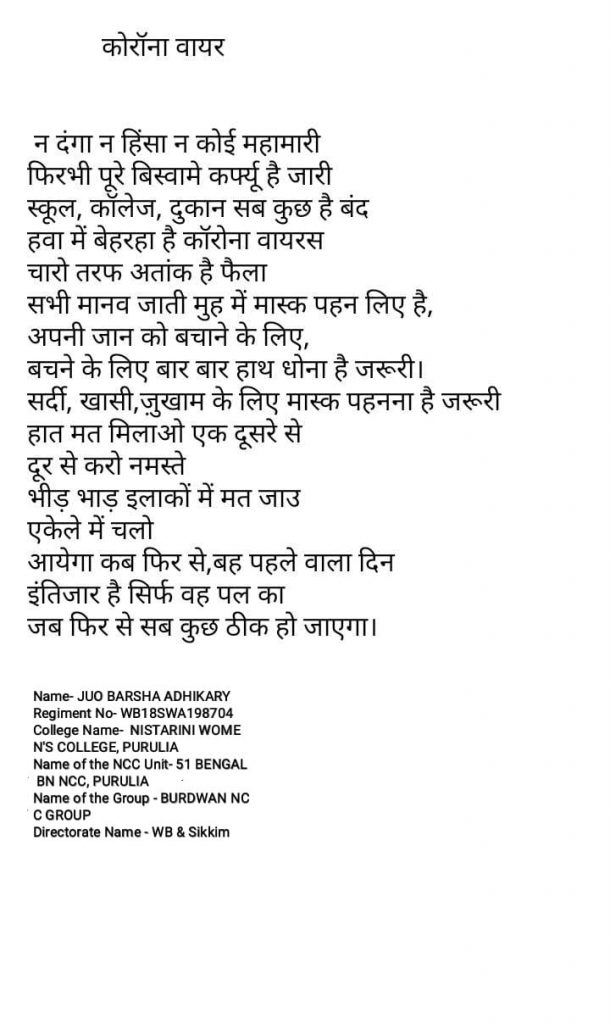 कोरॉना वायर
न दंगा न हिंसा न कोई महामारी
फिरभी पूरे बिस्वामे कर्फ्यू है जारी
स्कूल, कॉलेज, दुकान सब कुछ है बंद
हवा में बेहरहा है कॉरोना वायरस
चारो तरफ अतांक है फैला
सभी मानव जाती मुह में मास्क पहन लिए है,
अपनी जान को बचाने के लिए,
बचने के लिए बार बार हाथ धोना है जरूरी।
सर्दी, खासी,जु़खाम के लिए मास्क पहनना है जरूरी
हात मत मिलाओ एक दूसरे से
दूर से करो नमस्ते
भीड़ भाड़ इलाकों में मत जाउ
एकेले में चलो
आयेगा कब फिर से,बह पहले वाला दिन
इंतिजार है सिर्फ वह पल का
जब फिर से सब कुछ ठीक हो जाएगा।
Name- JUO BARSHA ADHIKARY
Regiment No- WB18SWA198704
College Name- NISTARINI WOME
N'S COLLEGE, PURULIA
Name of the NCC Unit- 51 BENGAL
BN NCC, PURULIA
Name of the Group - BURDWAN NC
C GROUP
Directorate Name - WB & Sikkim